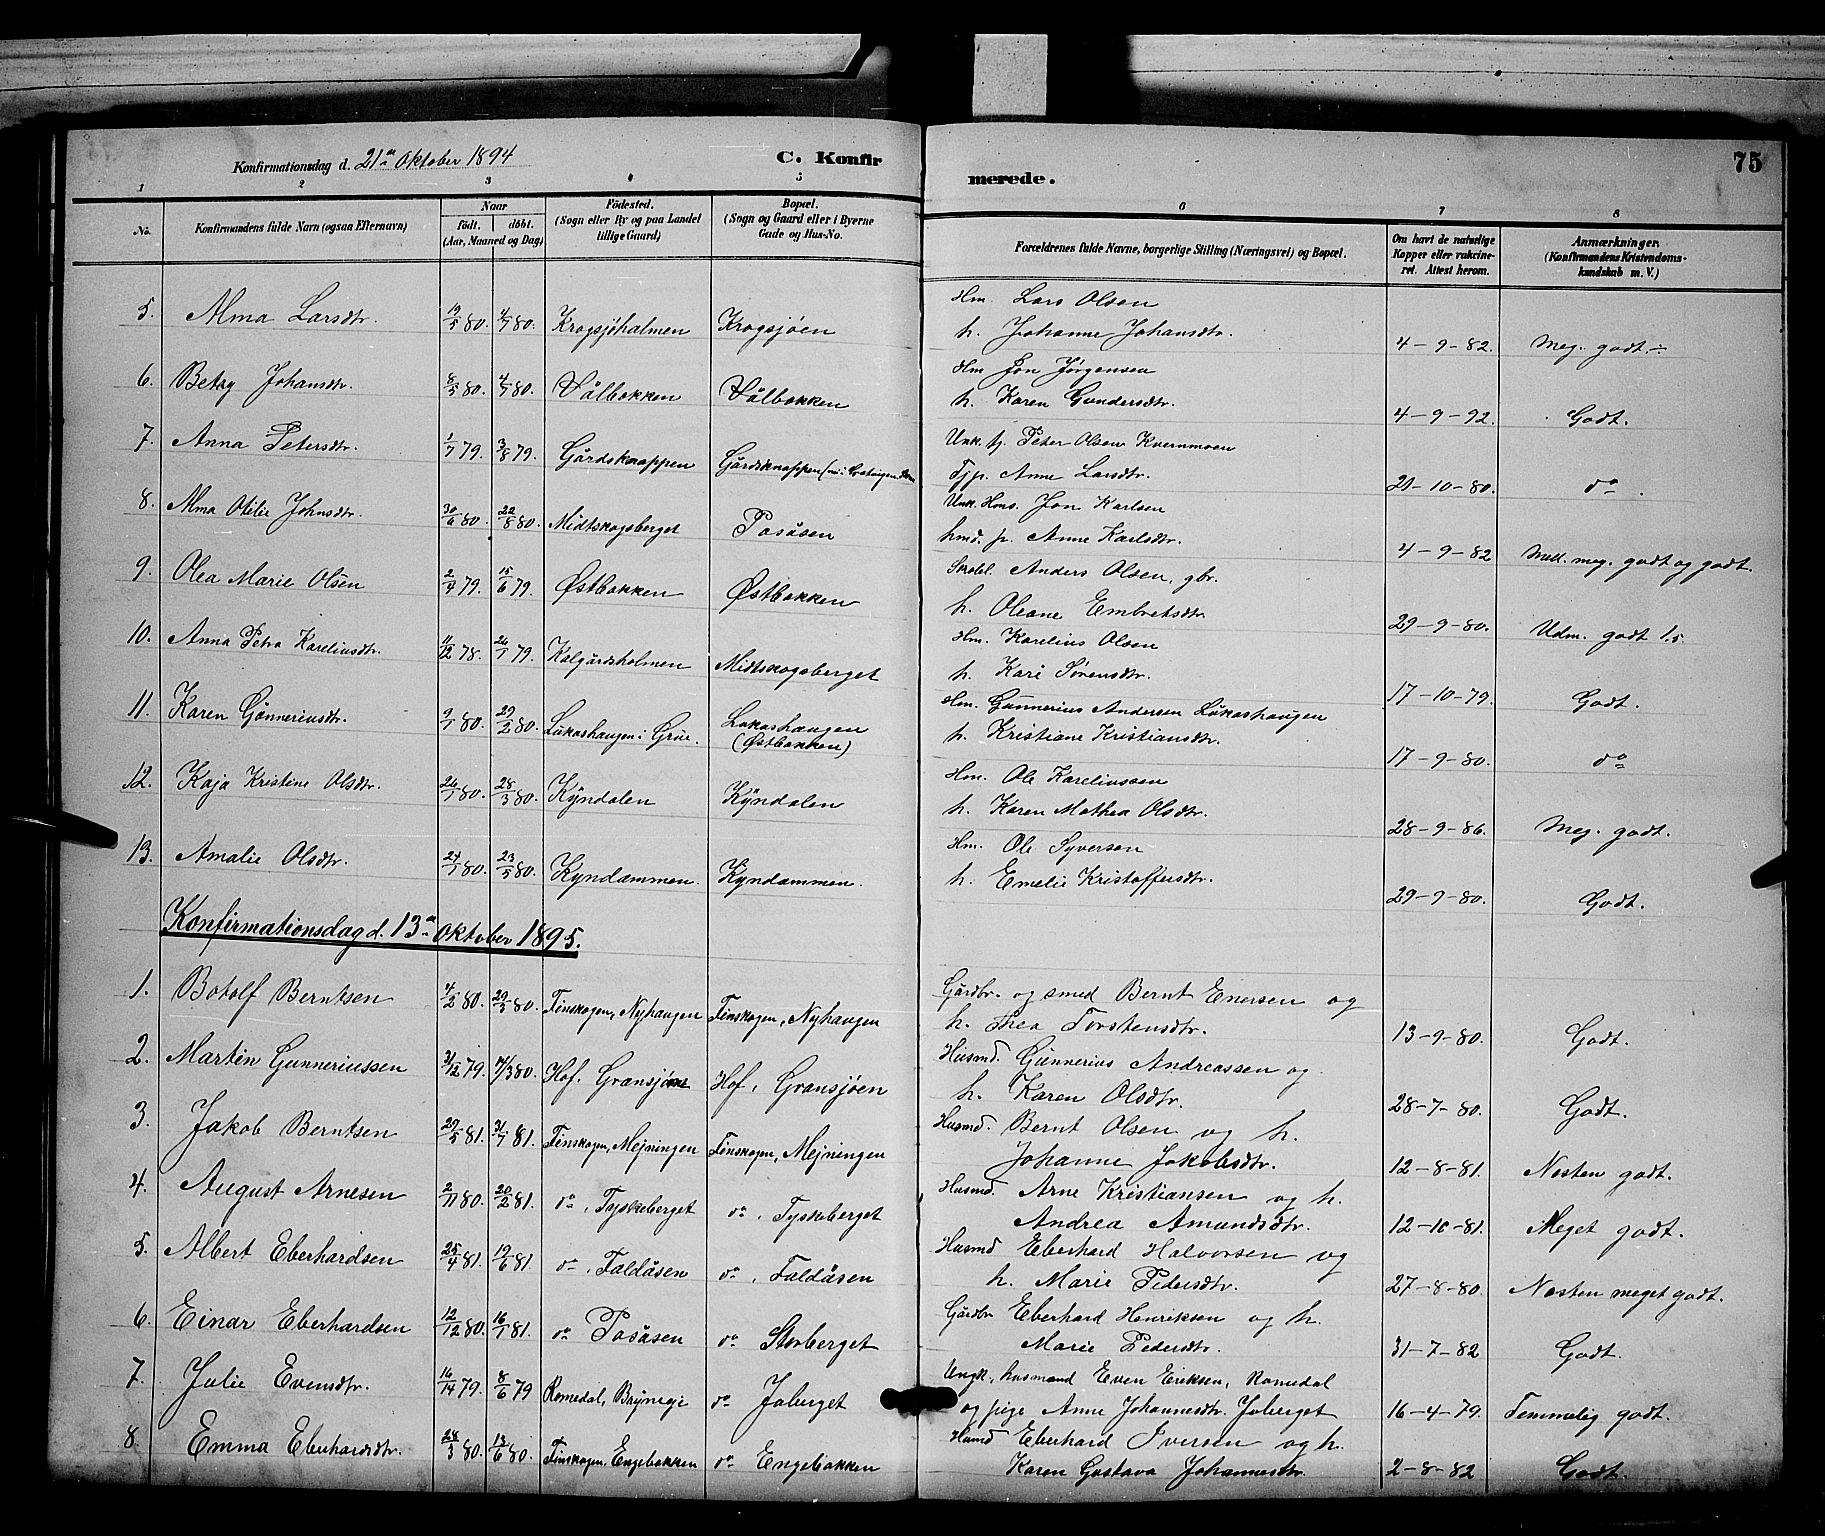 Konfirmationsdag d. 21de Oktober 1894 C. Konfir
merede. 75
1 2 3 4 5 6 7 8
No. Konfirmandens fulde Navn (ogsaa Efternavn) Naar født. døbt. (Aar, Maaned og Dag) Fødested. (Sogn eller By og paa Landet tillige Gaard) Bopæl. (Sogn og Gaard eller i Byerne Gade og Hus-No. Forældrenes fulde Navne, borgerlige Stilling (Næringsvei) og Bopæl. Om havt de naturlige Kopper eller vakcineret. Attest herom. Anmærkninger. (Konfirmandens Kristendomskundskab m. V.)
5. Alma Larsdtr. 19/5 80. 4/7 80. Krogsjøholmen Krogsjøen Hm. Lars Olsen
h. Johanne Johansdtr. 4-9-82. Meg. godt.
6. Betzy Johansdtr. 8/5 80. 4/7 80. Vålbakken Vålbakken Hm Jon Jørgensen
h. Karen Gundersdtr. 4-9-92. Godt.
7. Anna Petersdtr. 1/7 79. 3/8 79. Gårdsknappen Gårdsknappen Unk. tj. Peter Olsen Kvernmoen
Tjp. Anne Larsdtr. 29-10-80. do.
8. Alma Otilie Johnsdtr. 30/6 80. 22/8 80. Midtskogsberget Posåsen Unk. Hms. Jon Karlsen
hmd. p. Anne Karlsdtr. 4-9-82 Mell. meg. godt og godt.
9. Olea Marie Olsen 2/4 79. 15/6 79. Østbakken Østbakken Anders Olsen, gbr.
h. Oleane Embretsdtr. 29-9-80. Udm. godt 1.5.
10. Anna Petra Kareliusdtr. 11/12 78. 26/1 79. Kalgårdsholmen Midtskogsberget Hm. Karelius Olsen
h. Kari Sørensdtr. 17-10-79. Godt.
11. Karen Gunneriusdtr. 9/1 80. 29/2 80. Lukashaugen i Grue. Lukashaugen (Østbakken) Hm. Gunnerius Andersen Lukashaugen
h. Kristiane Kristiansdtr. 17-9-80. do
12. Kaja Kristine Olsdtr. 26/1 80. 28/3 80. Kyndalen Kyndalen Hm. Ole Kareliussen
h. Karen Mathea Olsdtr. 28-9-86. Meg. godt.
13. Amalie Olsdtr. 24/1 80. 23/5 80. Kyndammen. Kyndammen. Hm. Ole Syversen
h. Emelie Kristoffersdtr. 29-9-80. Godt.
Konfirmationsdag d. 13de Oktober 1895.
1. Botolf Berntsen 4/2 80. 29/3 80. Finskogen, Nyhaugen Finskogen, Nyhaugen Gårdbr. og smed Bernt Enersen og
h. Thea Torstensdtr. 13-9-80. Godt.
2. Martin Gunneriussen 31/12 79. 14/3 80. Hof. Gransjøen Hof, Gransjøen Husmd. Gunnerius Andreassen og
h. Karen Olsdtr. 28-7-80. Godt.
3. Jakob Berntsen 29/5 81. 31/7 81. Finskogen, Mejningen Finskogen, Mejningen Husmd. Bernt Olsen og h.
Johanne Jakobsdtr. 12-8-81. Nesten godt.
4. August Arnesen 2/11 80. 20/2 81. do, Tyskeberget do, Tyskeberget Husmd. Arne Kristiansen og h.
Andrea Amundsdtr. 12-10-81. Meget godt.
5. Albert Eberhardsen 25/4 81. 19/6 81. do, Faldåsen do, Faldåsen Husmd Eberhard Halvorsen og
h. Marie Pedersdtr. 27-8-80. Nesten meget godt.
6. Einar Eberhardsen 12/12 80. 16/1 81. do Posåsen do Storberget Gårdbr Eberhard Henriksen og h.
Marie Pedersdtr. 31-7-82 Godt.
7. Julie Evensdtr. 16/14 79. 8/6 79 Romedal, Brynegi do Joberget Ungk., husmand Even Eriksen, Romedal
og pige Anne Johannesdtr. Joberget 16-4-79. Temmelig godt.
8. Emma Eberhardsdtr. 28/3 80. 13/6 80. Finskogen, Engebakken do Engebakken Husmd Eberhard Iversen og h.
Karen Gustava Johannesdtr. 2-8-82 Godt.